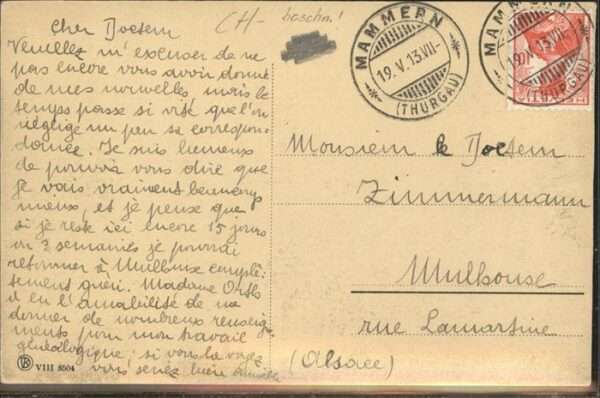 Cher Docteur
Veuillez m'excuser de ne
pas encore vous avoir donné
de mes nouvelles, mais le
temps passe si vite que l'on
néglige un peu sa correspon-
dance. Je suis heureux
de pouvoir vous dire que
je vais vraiment beaucoup
mieux, et je pense que
si je reste ici encore 15 jours
ou 3 semaines je pourrai
retourner à Mulhouse complè-
tement guéri. Madame
a eu l'amabilité de me
donner de nombreux renseig-
ments pour mon travail
généalogique; si vous la voyez
vous serez bien
VIII 8504
CH- beschr.!
MAMMERN
19.V.13.VII-
(THURGAU)
MAMMERN
(THURGAU)
HELVETIA
Monsieur le Docteur
Zimmermann
Mulhouse
rue Lamartine
(Alsace)